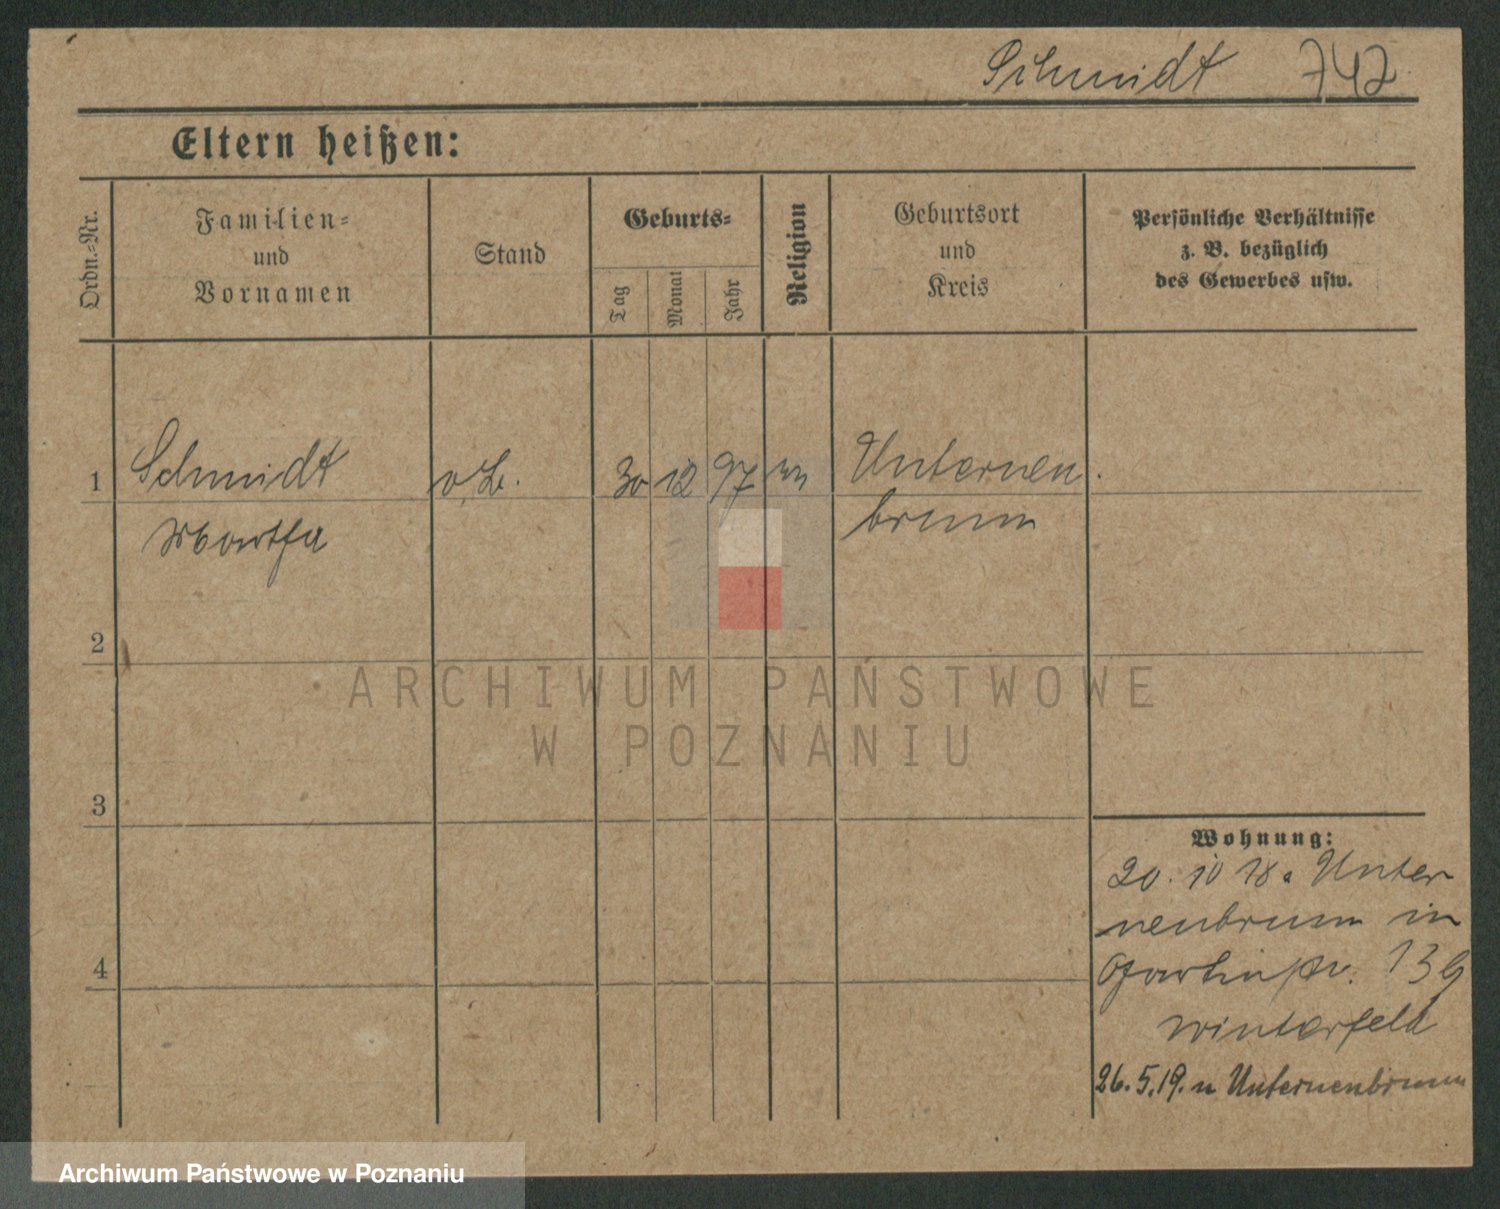 Schmidt 742
Eltern heißen:
Ordn.-Nr.
Familien-
und
Vornamen
Stand
Geburts-
Tag
Monat
Jahr
Religion
Geburtsort
und
Kreis
Persönliche Verhältnisse
z. B. bezüglich
des Gewerbes usw.
1 Schmidt o.B. 30 12 97 Unternen
Martha brunn
2
3
4
Wohnung:
20. 10 18. Unter
nenbrunn in
13
Winterfeld
26.5.19. n Unternenbrunn
ARCHIWUM PAŃSTWOWE
W POZNANIU
Archiwum Państwowe w Poznaniu